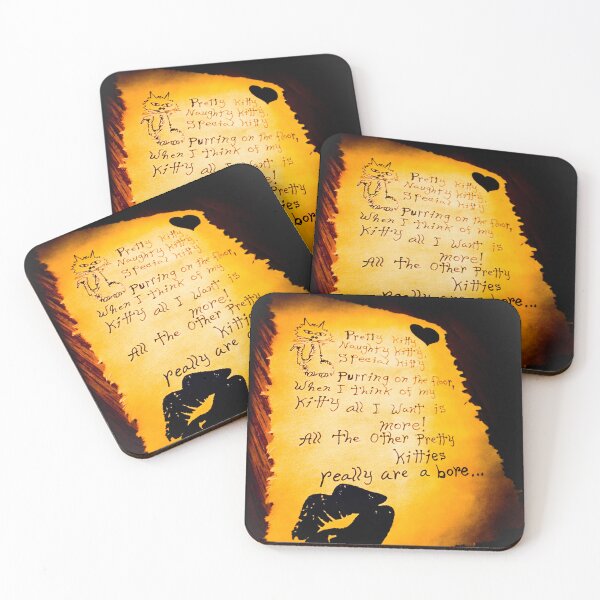 Pretty Kitty,
Naughty Kitty,
Special Kitty
Purring on the floor,
When I Think of my
Kitty all I Want is
more!
All the Other Pretty
Kitties
really are a bore
Pretty Kitty,
Naughty Kitty,
Special Kitty
Purring on the floor,
When I Think of my
Kitty all I Want is
more!
All the Other Pretty
Kitties
really are a bore...
Pretty Kitty,
Naughty Kitty,
Special Kitty
Purring on the floor,
When I Think of my
Kitty all I Want is
more!
All the Other Pretty
Kitties
really are a
Pretty Kitty,
Naughty Kitty,
Special Kitty
Purring on the floor,
When I Think of my
Kitty all I Want is
more!
All the Other Pretty
Kitties
really are a bore...